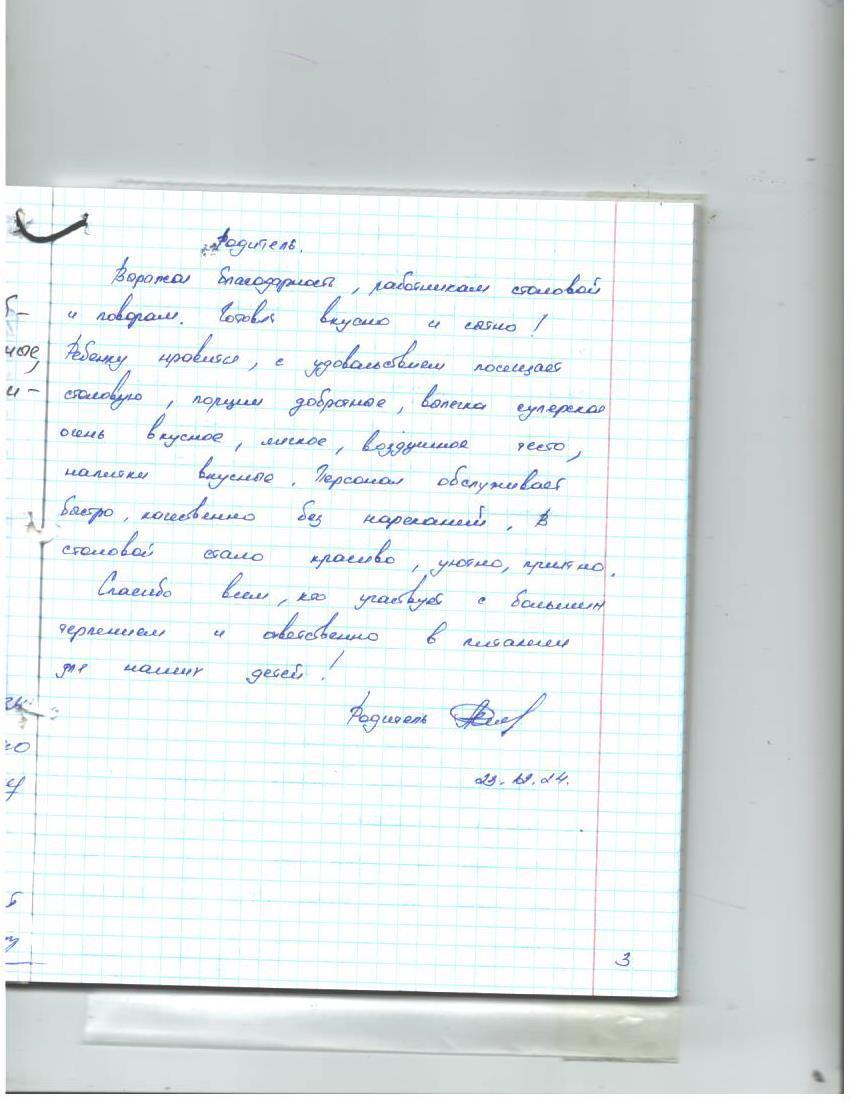 Родитель.
Выражаю благодарность, работникам столовой
и поварам. Готовят вкусно и сытно!
Ребенку нравится, с удовольствием посещает
столовую, порции добротные, выпечка суперская
очень вкусное, мягкое, воздушное тесто,
напитки вкусные. Персонал обслуживает
быстро, качественно без нареканий. В
столовой стало красиво, уютно, приятно.
Спасибо всем, кто участвует с большим
терпением и ответственно в питании
для наших детей!
Родитель
24.
3